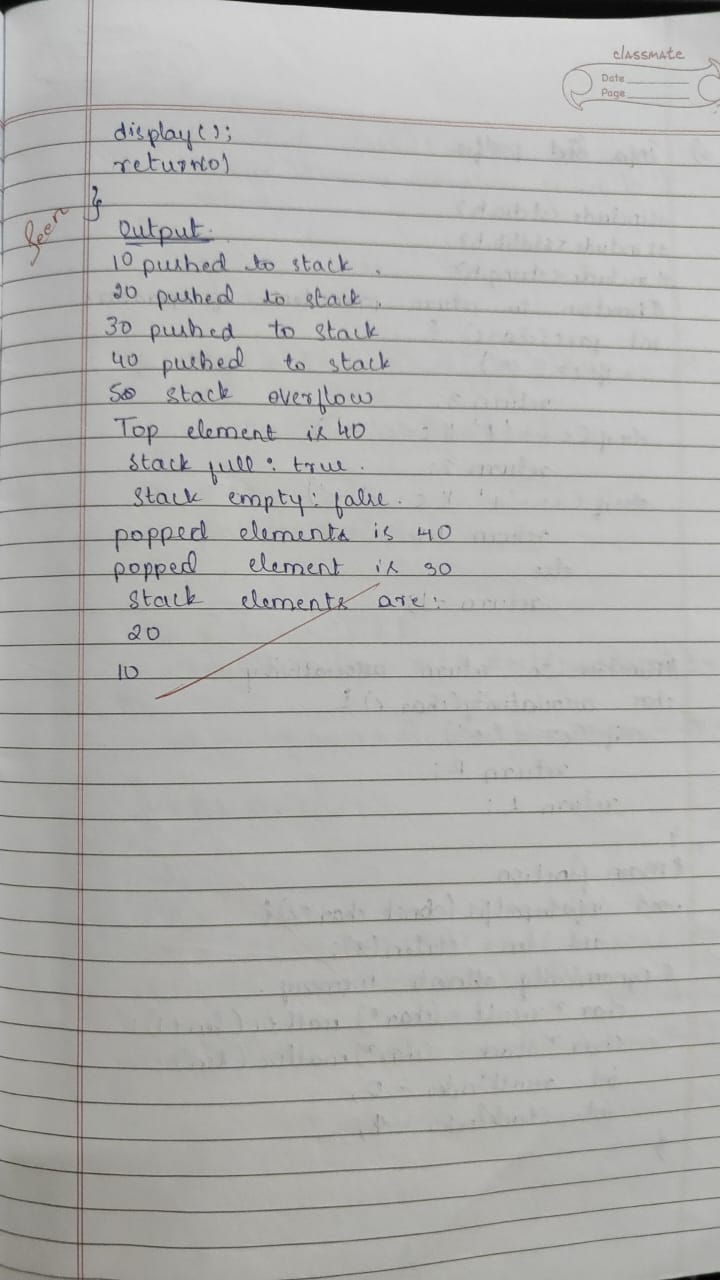 classmate
Date
Page
display();
return(0)
}
Seen
Output:
10 pushed to stack.
20 pushed to stack.
30 pushed to stack
40 pushed to stack
50 stack overflow
Top element is 40
stack full: true.
stack empty: false.
popped elements is 40
popped element is 30
stack elements are:
20
10